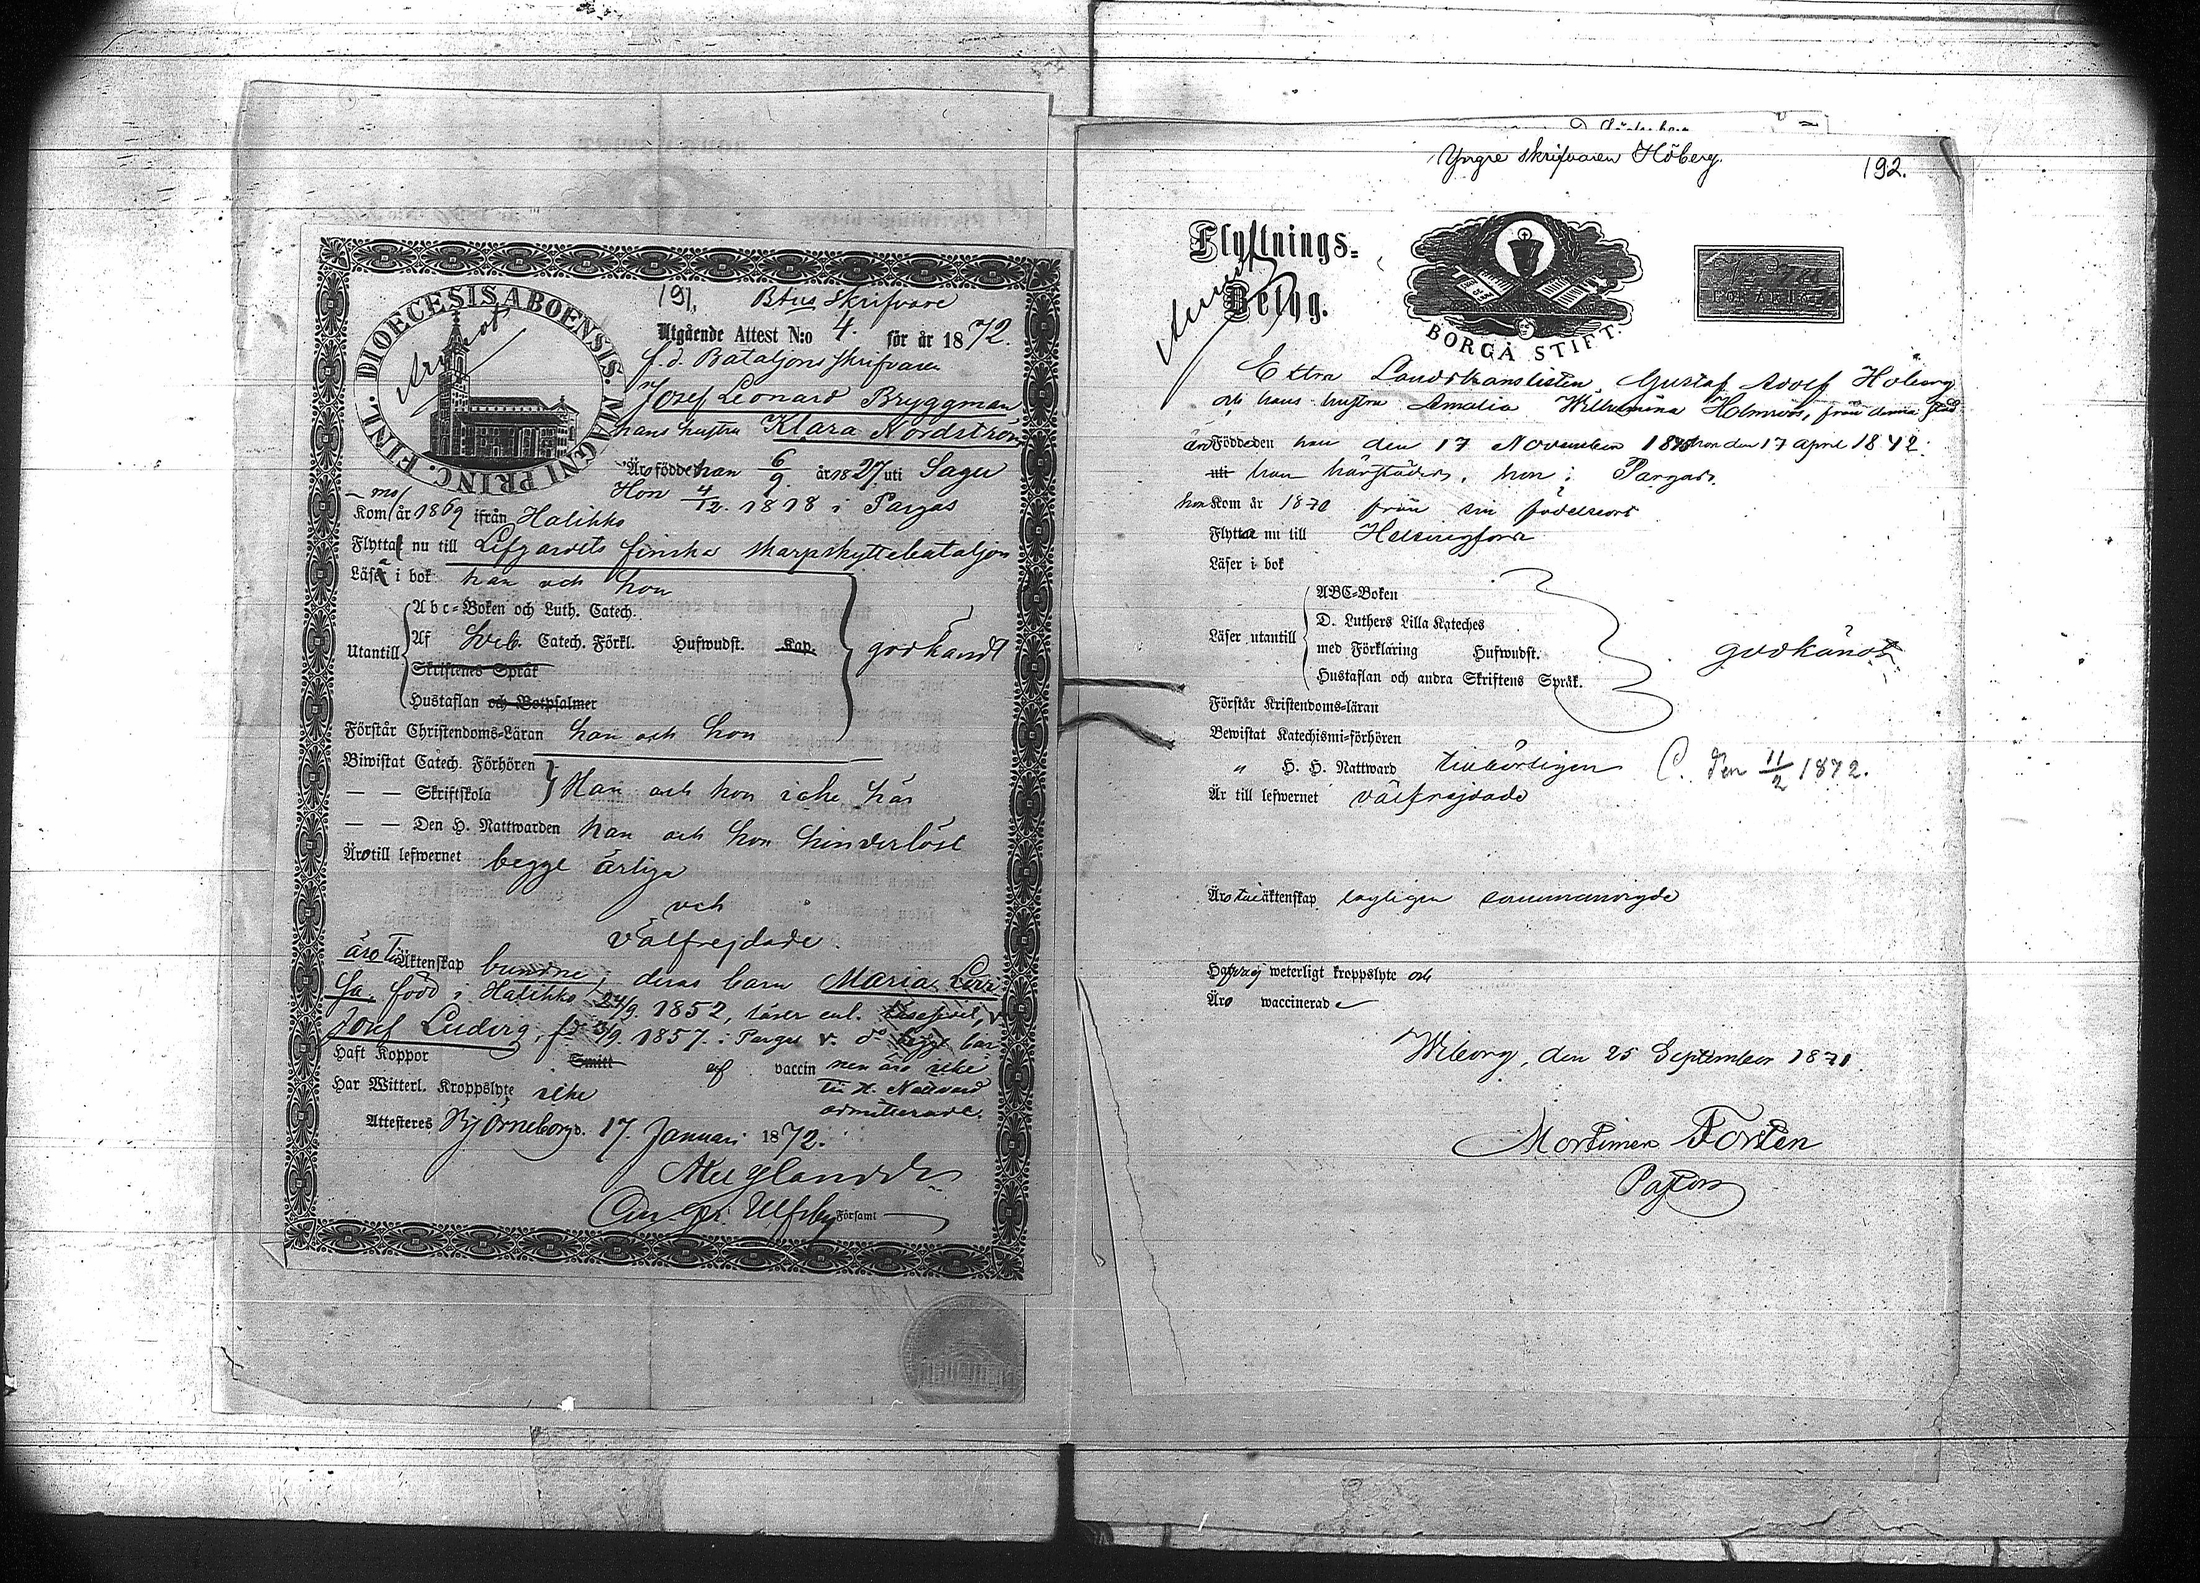 191,
Btns Skrifvare
DIOECESIS ABOENSIS. MAGNI PRINC. FINL.
Utgående Attest N:o 4. för år 1872.
f. d. Bataljons skrifvaren
Josef Leonard Bryggman
hans hustru Klara Nordström
Äro födde han 6/9 år 1827 uti Sagu
Hon 4/12. 1818 i Pargas
Kom år 1869 ifrån Halikko
Flytta nu till Lifgardets finska skarpskyttebataljon
Läsa i bok han och hon
Abc-Boken och Luth. Catech.
Utantill
Af Sveb. Catech. Förkl. Hufwudst. Kap.
godkändt
Skriftenes Språk
Hustaflan och Botpsalmer
Förstår Christendoms-Läran han och hon
Biwistat Catech. Förhören
— — Skriftskola
Han och hon icke här
— — Den H. Nattwarden han och hon hinderlöst
Äro till lefwernet begge ärliga
och
välfrejdade
äro i Äktenskap bundne; deras barn Maria Lovi
sa, född i Halikko 24/9 1852, läser enl.
Josef Ludvig, 1857. i Pargas begge bar
Haft Koppor Smitt af vaccin nen äro icke
Har Witterl. Kroppslyte icke
till H. Nattvard
admitterade.
Attesteres Björneborg d. 17. Januari 1872.
Ulfsby Församl
Yngre skrifvaren Höberg.
192.
Flyttnings-
Betyg.
BORGÅ STIFT.
Extra Landskanslisten, Gustaf Adolf Höberg
och hans hustru Amalia Wilhelmina Holmroos, från denna stad
äro Född den han den 17 November hon den 17 April 1842.
uti han härstädes, hon i Pargas.
hon Kom år 1870 från sin födelseort
Flytta nu till Helsingfors
Läser i bok
ABC-Boken
D. Luthers Lilla Kateches
Läser utantill
med Förklaring Hufwudst.
godkändt
Hustaflan och andra Skriftens Språk.
Förstår Kristendoms-läran
Bewistat Katechismi-förhören
" H. H. Nattward tillbörligen C. den 11/2 1872.
Är till lefwernet välfrejdade
Äro till äktenskap lagligen sammanvigde
Hafva ej weterligt kroppslyte och
Äro waccinerade
Wiborg, den 25 September 1871.
Mortimer Forstén
Pastor